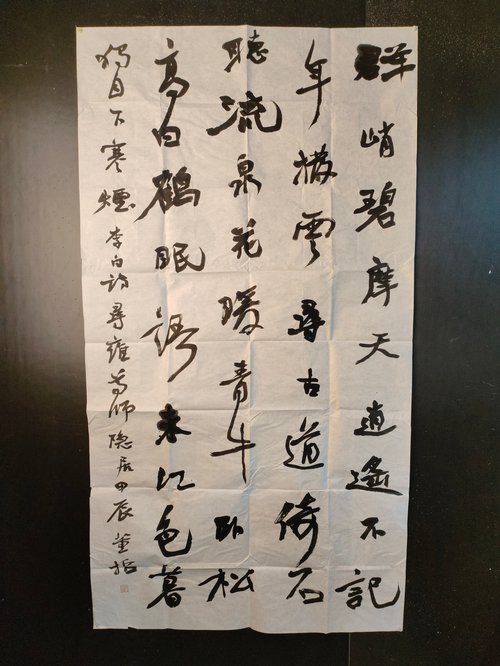 群峭碧摩天逍遙不記
年撥雲尋古道倚石
聽流泉花暖青牛卧松
高白鶴眠語來江色暮
獨自下寒煙李白詩尋雍尊師隱居甲辰